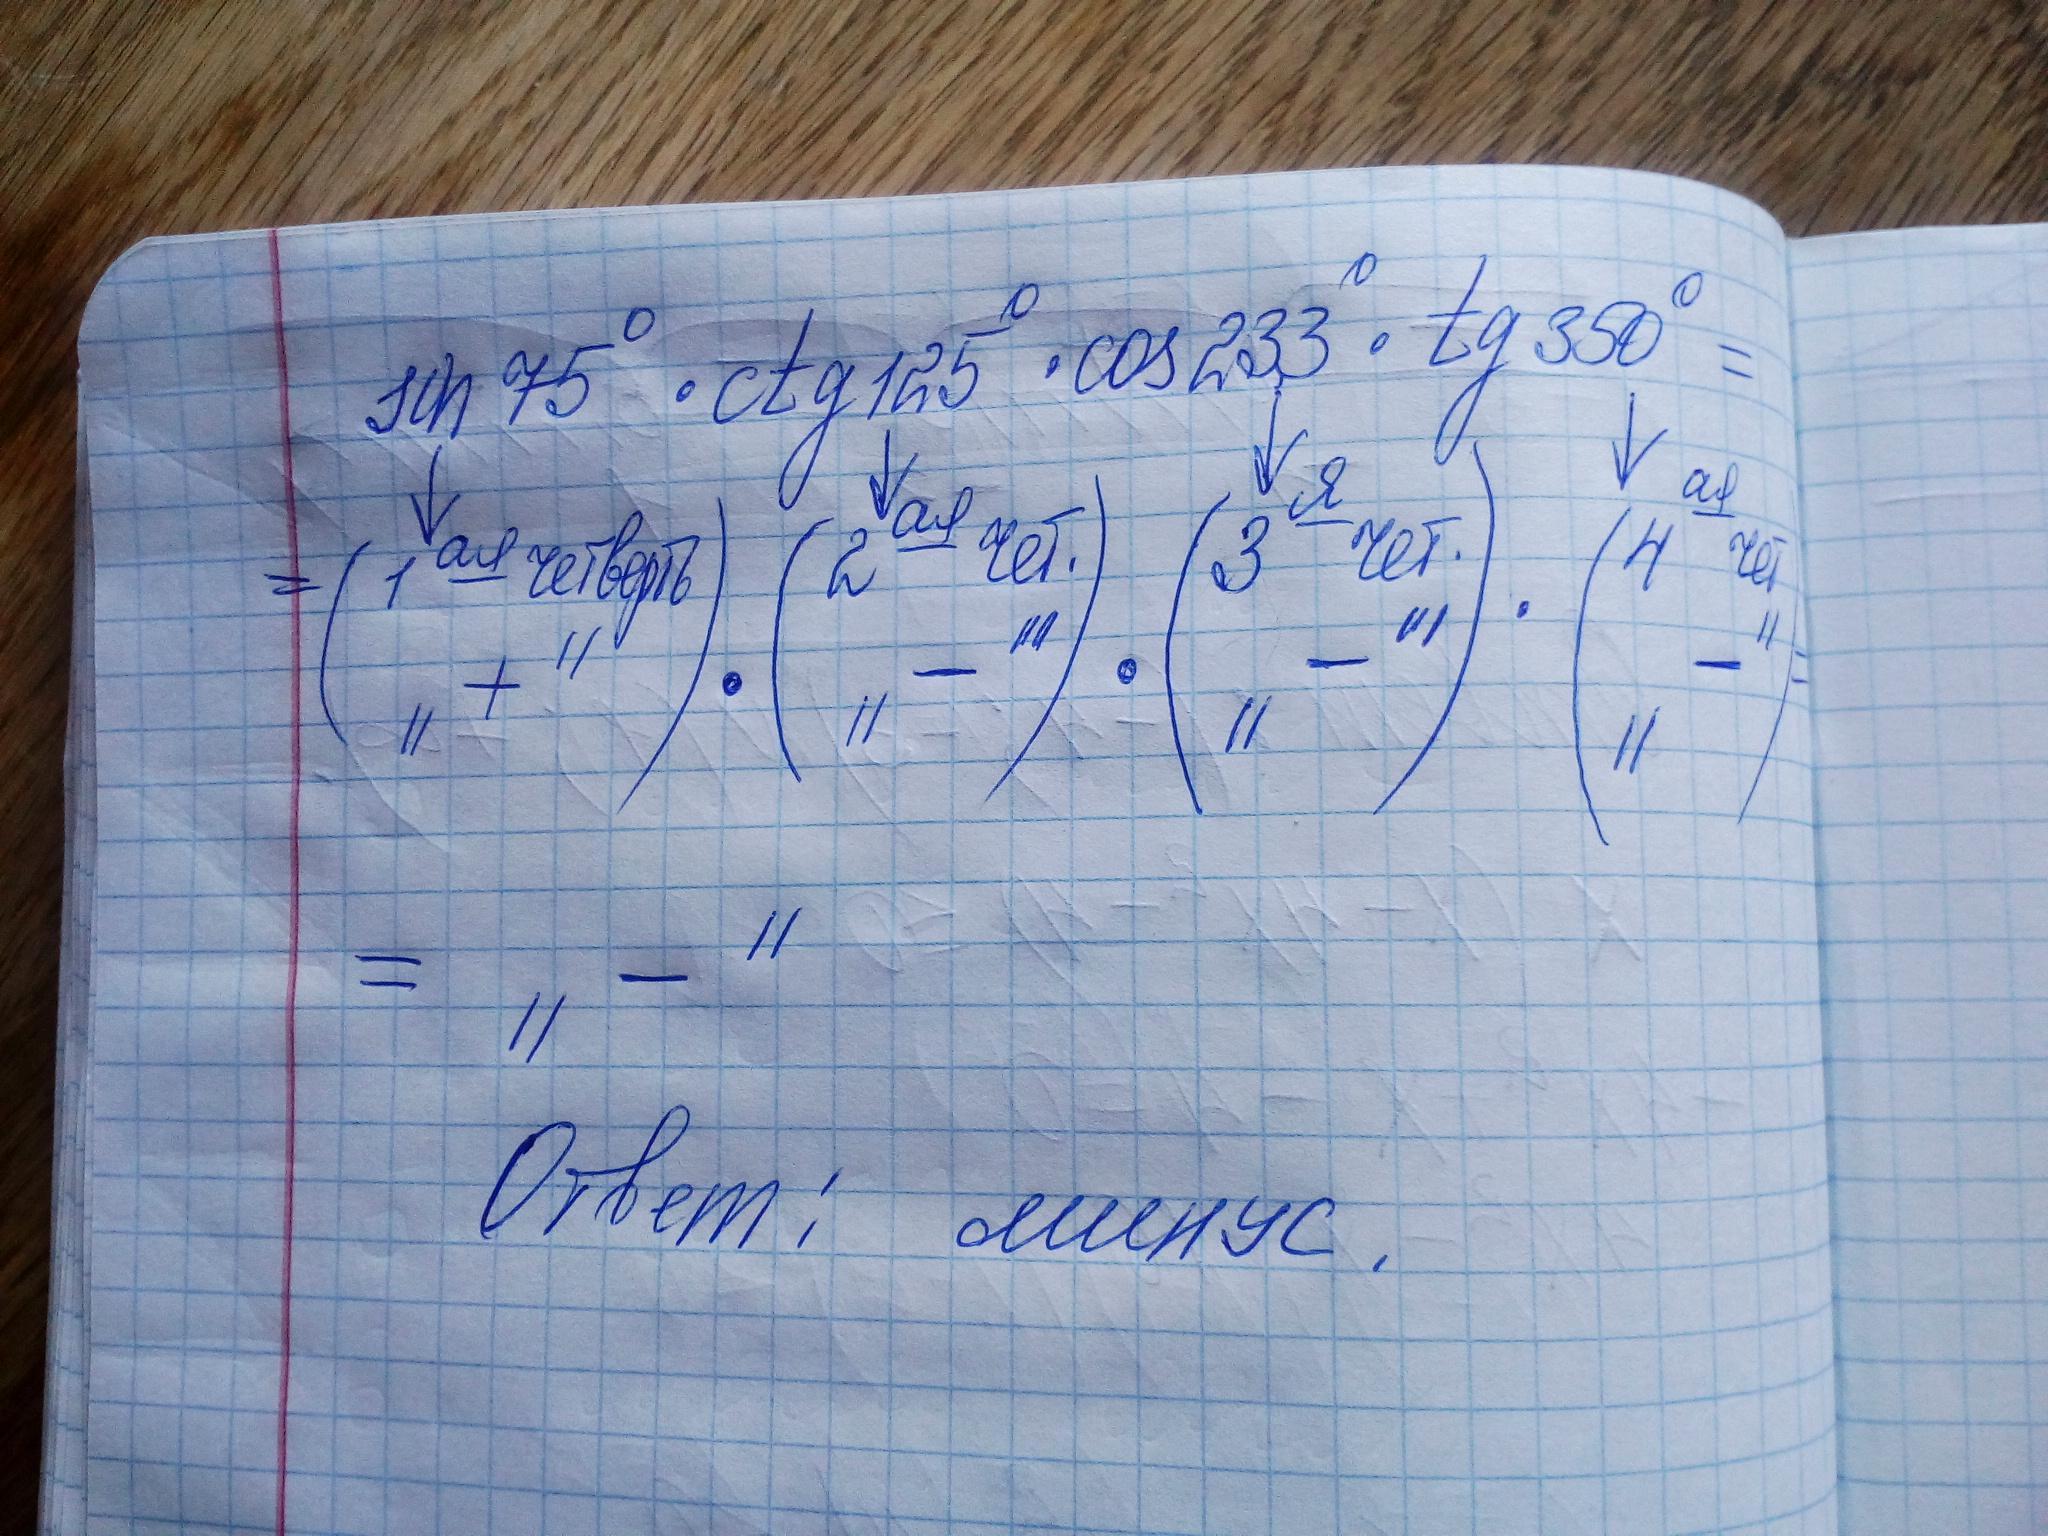 sin 75° · ctg 125° · cos 233° · tg 350° =
= (1ая четверть „ + ") · (2ая чет. „ − ") · (3я чет. „ − ") · (4ая чет „ − ") =
= „ − "
Ответ: минус.